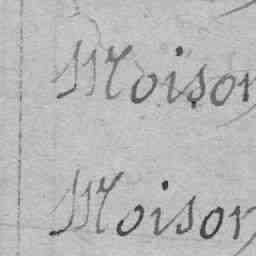 Moison
Moison